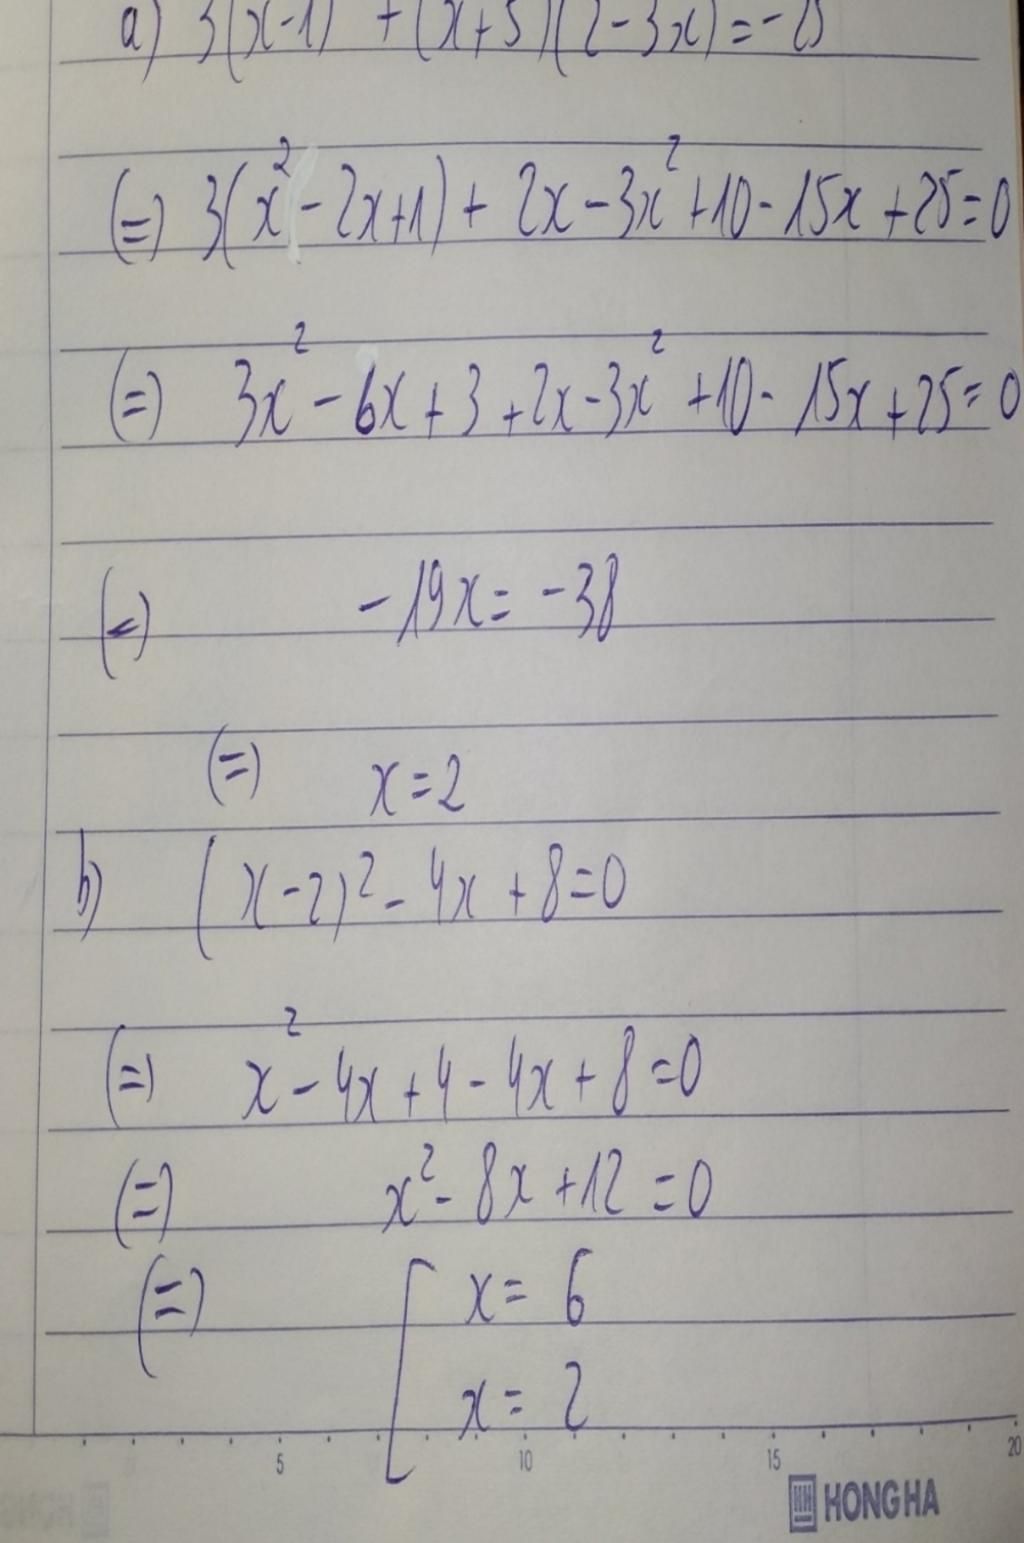 a) 3(x-1) + (x+5)(2-3x)=-25
(=) 3(x²-2x+1)+ 2x-3x²+10-15x+25=0
(=) 3x²-6x+3+2x-3x²+10-15x+25=0
(=) -19x=-38
(=) x=2
b) (x-2)²-4x+8=0
(=) x²-4x+4-4x+8=0
(=) x²-8x+12=0
(=) [ x=6
x=2
5 10 15 20
HONG HA